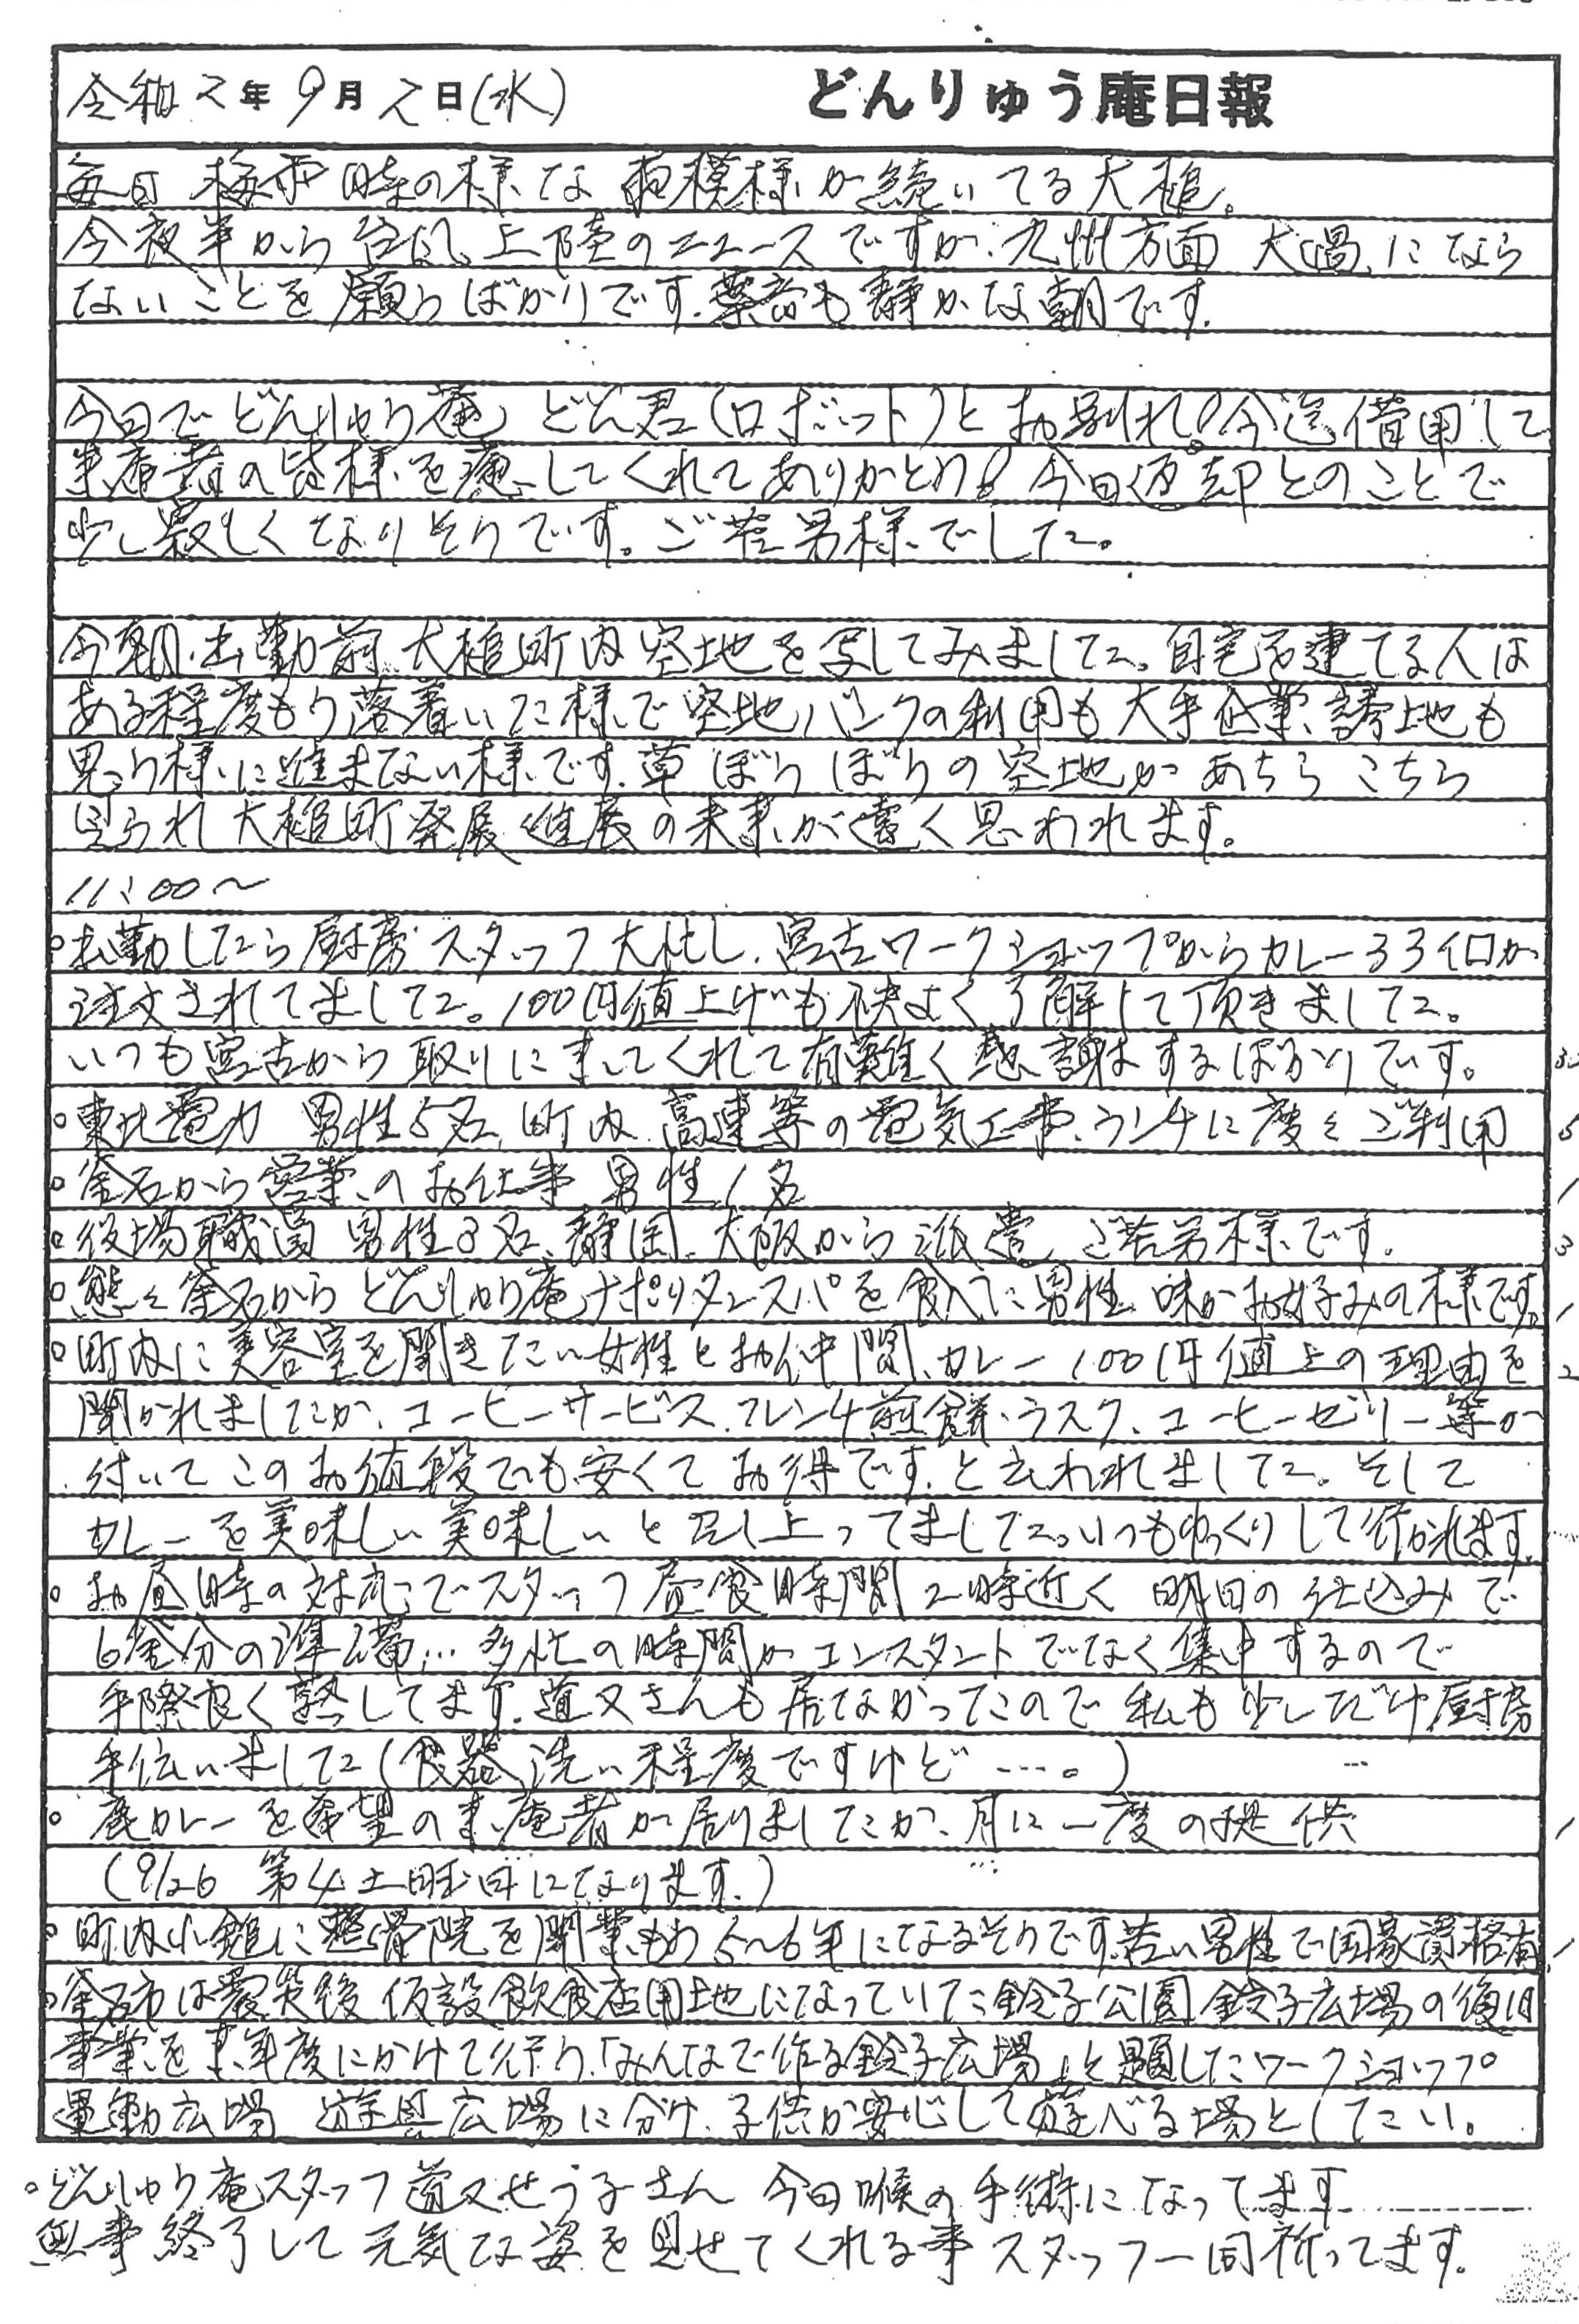 令和2年9月2日(水) どんりゅう庵日報
毎日 梅雨時の様な雨模様が続いてる大槌。
今夜半から台風上陸のニュースですが、九州方面 大禍になら
ないことを願うばかりです。薬音も静かな朝です。
今日でどんりゅう庵 どん君(ロボット)とお別れ!今迄借用して
来庵者の皆様を癒してくれてありがとう!今日返却とのことで
少し寂しくなりそうです。ご苦労様でした。
今朝、出勤前、大槌町内空地を写してみました。自宅を建てる人は
ある程度もう落着いた様で空地バンクの利用も大手企業誘地も
思う様に進まない様です。草ぼうぼうの空地があちらこちら
見られ大槌町発展進展の未来が遠く思われます。
11:00〜
○出勤したら厨房スタッフ大忙し、宮古ワークショップからカレー33個が
注文されてました。100円値上げも快よく了解して頂きました。
いつも宮古から取りに来てくれて有難く感謝するばかりです。
○東北電力 男性5名、町内、高速等の電気工事、ランチに度々ご利用 5
○釜石から営業のお仕事 男性1名 1
○役場職員 男性3名、静岡、大阪から派遣、ご苦労様です。 3
○態々釜石からどんりゅう庵ナポリタンスパを食べに男性、味がお好みの様です。 1
○町内に美容室を開きたい女性とお仲間、カレー100円値上の理由を 2
聞かれましたが、コーヒーサービス、フレンチ煎餅、ラスク、コーヒーゼリー等が
付いてこのお値段でも安くてお得です。と言われました。そして
カレーを美味しい美味しいと召し上ってました。いつもゆっくりして行かれます。
○お昼時の対応でスタッフ昼食時間2時近く 明日の仕込みで
6釜分の準備… 多忙の時間がコンスタントでなく集中するので
手際良く熟してます。道又さんも居なかったので私も少しだけ厨房
手伝いました(食器洗い程度ですけど…。)
○鹿カレーを希望の来庵者が居りましたが、月に一度の提供 1
(9/26 第4土曜日になります。)
○町内小鎚に整骨院を開業もう5〜6年になるそうです。若い男性で国家資格有 1
○釜石市は震災後 仮設飲食店用地になっていた鈴子公園、鈴子広場の復旧
事業を来年度にかけて行う、「みんなで作る鈴子広場」と題したワークショップ
運動広場 遊具広場に分け、子供が安心して遊べる場としたい。
○どんりゅう庵スタッフ 道又せう子さん 今日喉の手術になってます
無事終了して元気な姿を見せてくれる事スタッフ一同祈ってます。